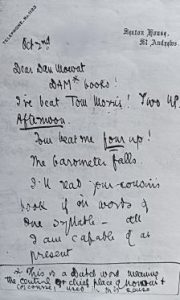 TELEPHONE, No 1183
Seaton House,
St Andrews.
Oct 2nd
Dear Dan Mowat
DAM* books!
I've beat Tom Morris! Two up.
Afternoon.
Tom beat me four up!
The barometer falls
I'll read your cousin's
book if in words of
one syllable — all
I am capable of at
present
* This is a Dutch word meaning
the central or chief place of honour &
(of course) used in this sense